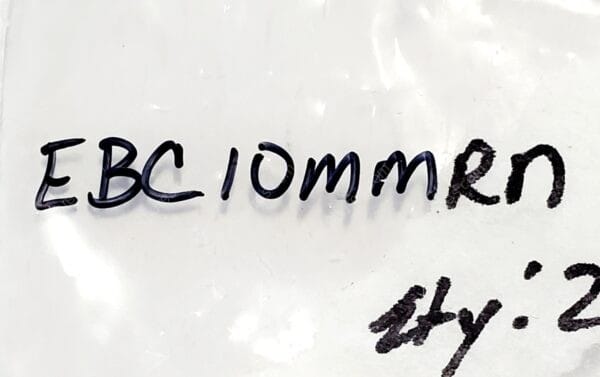 EBC10mmRn
qty:2